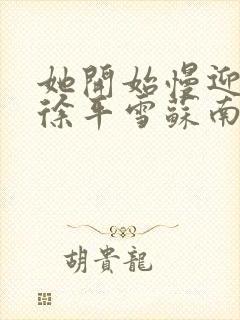 她開始慢迎
徐年雪蘇南
胡貴龍